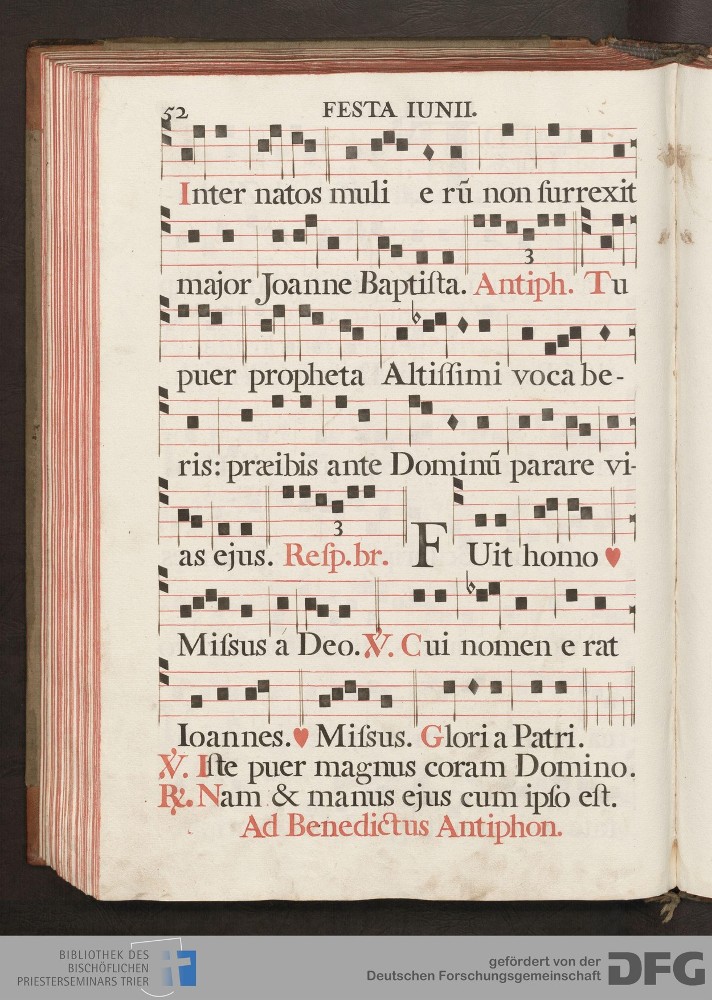 52 FESTA IUNII.
Inter natos muli e rũ non ſurrexit
3
major Joanne Baptiſta. Antiph. Tu
puer propheta Altiſſimi voca be-
ris: præibis ante Dominũ parare vi-
3
as ejus. Reſp.br. FUit homo ♥
Miſsus a Deo. ℣. Cui nomen e rat
Ioannes. ♥ Miſsus. Glori a Patri.
℣. Iſte puer magnus coram Domino.
℟. Nam & manus ejus cum ipſo eſt.
Ad Benedictus Antiphon.
BIBLIOTHEK DES
BISCHÖFLICHEN
PRIESTERSEMINARS TRIER
gefördert von der
Deutschen Forschungsgemeinschaft
DFG